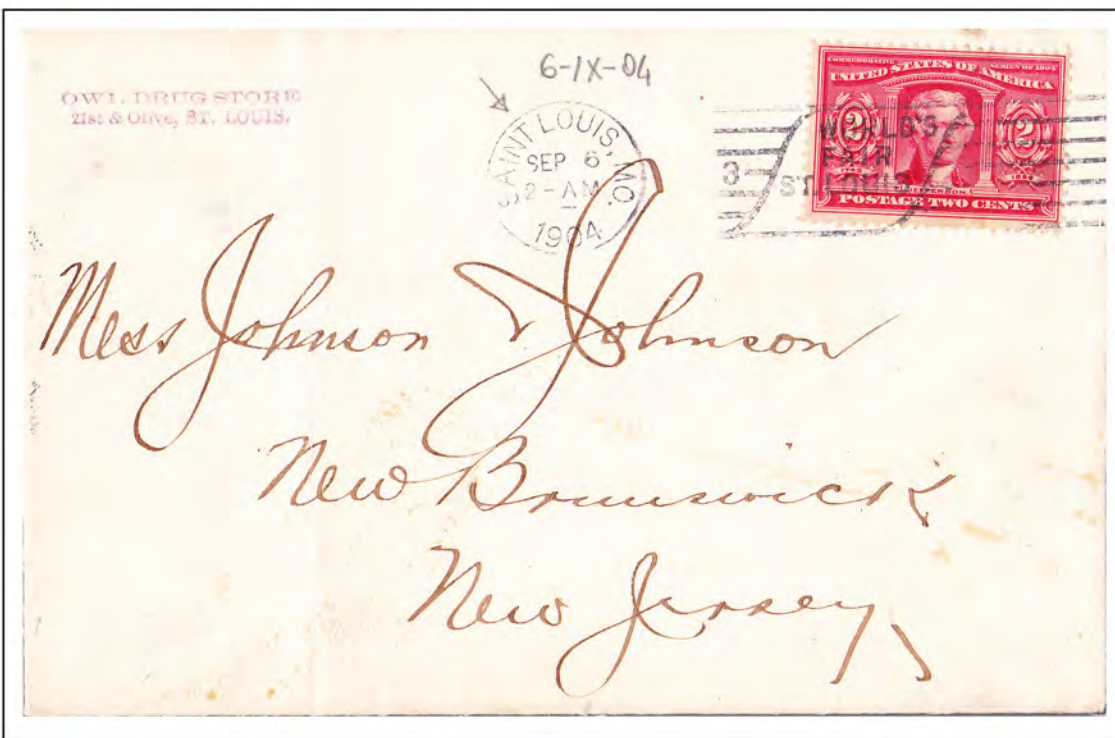 6-IX-04
OWL DRUG STORE
21st & Olive, ST. LOUIS.
SAINT LOUIS, MO.
SEP 6
2-AM
1904
3
WORLD'S
FAIR
ST. LOUIS
COMMEMORATIVE SERIES OF 1904
UNITED STATES OF AMERICA
2 2
1743 1826
JEFFERSON
POSTAGE TWO CENTS
Mess Johnson & Johnson
New Brunswick
New Jersey